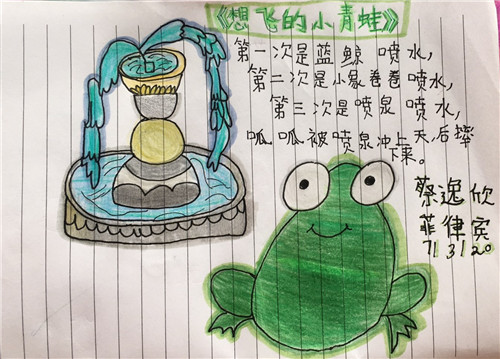 《想飞的小青蛙》
第一次是蓝鲸喷水,
第二次是小象卷卷喷水,
第三次是喷泉喷水,
呱呱被喷泉冲上天后摔
下来。
蔡逸欣
菲律宾
713120